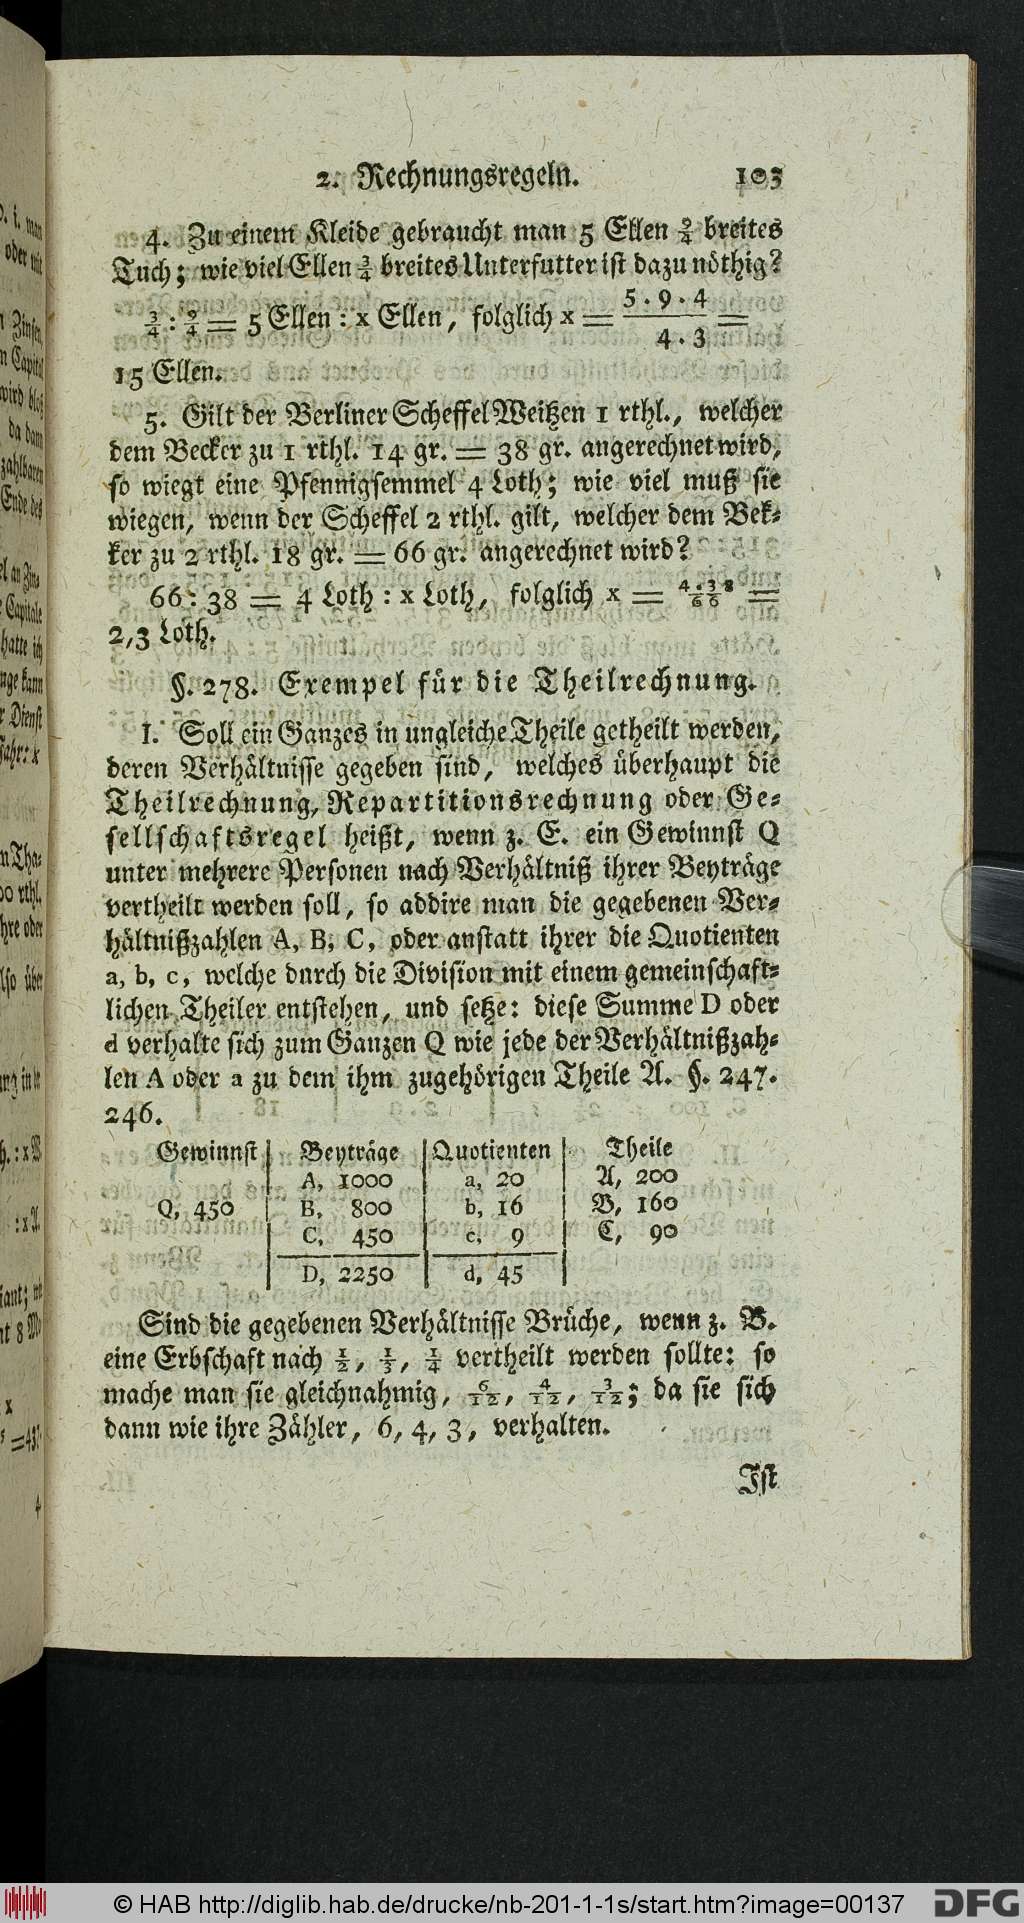 2. Rechnungsregeln. 103
4. Zu einem Kleide gebraucht man 5 Ellen 9/4 breites
Tuch; wie viel Ellen 3/4 breites Unterfutter ist dazu nöthig?
3/4 : 9/4 = 5 Ellen : x Ellen, folglich x = 5 . 9 . 4 / 4 . 3 =
15 Ellen.
5. Gilt der Berliner Scheffel Weitzen 1 rthl., welcher
dem Becker zu 1 rthl. 14 gr. = 38 gr. angerechnet wird,
so wiegt eine Pfennigsemmel 4 Loth; wie viel muß sie
wiegen, wenn der Scheffel 2 rthl. gilt, welcher dem Bek-
ker zu 2 rthl. 18 gr. = 66 gr. angerechnet wird?
66 : 38 = 4 Loth : x Loth, folglich x = 4 . 38 / 66 =
2,3 Loth.
§. 278. Exempel für die Theilrechnung.
I. Soll ein Ganzes in ungleiche Theile getheilt werden,
deren Verhältnisse gegeben sind, welches überhaupt die
Theilrechnung, Repartitionsrechnung oder Ge-
sellschaftsregel heißt, wenn z. E. ein Gewinnst Q
unter mehrere Personen nach Verhältniß ihrer Beyträge
vertheilt werden soll, so addire man die gegebenen Ver-
hältnißzahlen A, B, C, oder anstatt ihrer die Quotienten
a, b, c, welche durch die Division mit einem gemeinschaft-
lichen Theiler entstehen, und setze: diese Summe D oder
d verhalte sich zum Ganzen Q wie jede der Verhältnißzah-
len A oder a zu dem ihm zugehörigen Theile A. §. 247.
246.
Gewinnst | Beyträge | Quotienten | Theile
A, 1000 | a, 20 | A, 200
Q, 450 | B, 800 | b, 16 | B, 160
C, 450 | c, 9 | C, 90
D, 2250 | d, 45
Sind die gegebenen Verhältnisse Brüche, wenn z. B.
eine Erbschaft nach 1/2, 1/3, 1/4 vertheilt werden sollte: so
mache man sie gleichnahmig, 6/12, 4/12, 3/12; da sie sich
dann wie ihre Zähler, 6, 4, 3, verhalten.
Ist
© HAB http://diglib.hab.de/drucke/nb-201-1-1s/start.htm?image=00137 DFG